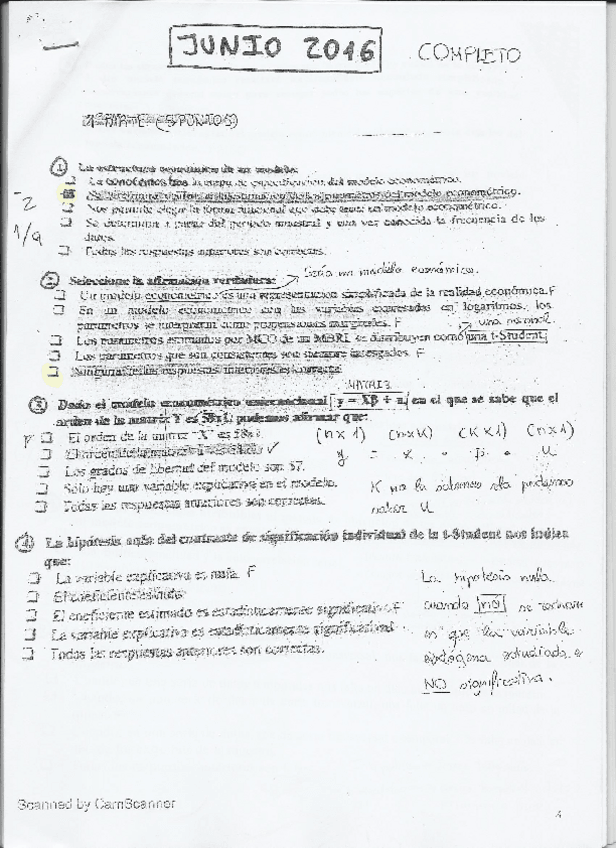 JUNIO 2016 COMPLETO
1ª PARTE (5 PUNTOS)
1 La estructura económica de un modelo:
La conocemos tras la etapa de especificación del modelo econométrico.
modelo econométrico.
Nos permite elegir la forma funcional que debe tener un modelo econométrico.
Se determina a partir del periodo muestral y una vez conocida la frecuencia de los
datos.
Todas las respuestas anteriores son correctas.
2 Seleccione la afirmación verdadera: Sería un modelo económico.
Un modelo econométrico es una representación simplificada de la realidad económica. F
En un modelo econométrico con las variables expresadas en logaritmos, los
parámetros se interpretan como propensiones marginales. F una normal.
Los parámetros estimados por MCO de un MBRL se distribuyen como una t-Student.
Los parámetros que son consistentes son siempre insesgados. F
Ninguna de las respuestas anteriores es correcta.
MATRIZ
3 Dado el modelo econométrico uniecuacional y = Xβ + u en el que se sabe que el
orden de la matriz Y es 58x1, podemos afirmar que:
F El orden de la matriz "X" es 58x1. (n x 1) (n x K) (K x 1) (n x 1)
y = x · β + u
Los grados de libertad del modelo son 57.
Sólo hay una variable explicativa en el modelo. K no la sabemos
Todas las respuestas anteriores son correctas.
4 La hipótesis nula del contraste de significación individual de la t-Student nos indica
que:
La variable explicativa es nula. F
El coeficiente es nulo
El coeficiente estimado es estadísticamente significativo. F
La variable explicativa es estadísticamente significativa.
Todas las respuestas anteriores son correctas.
La hipótesis nula
cuando no se rechaza
es que la variable
NO significativa.
Scanned by CamScanner